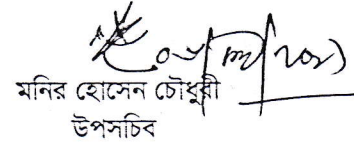 মনির হোসেন চৌধুরী
উপসচিব